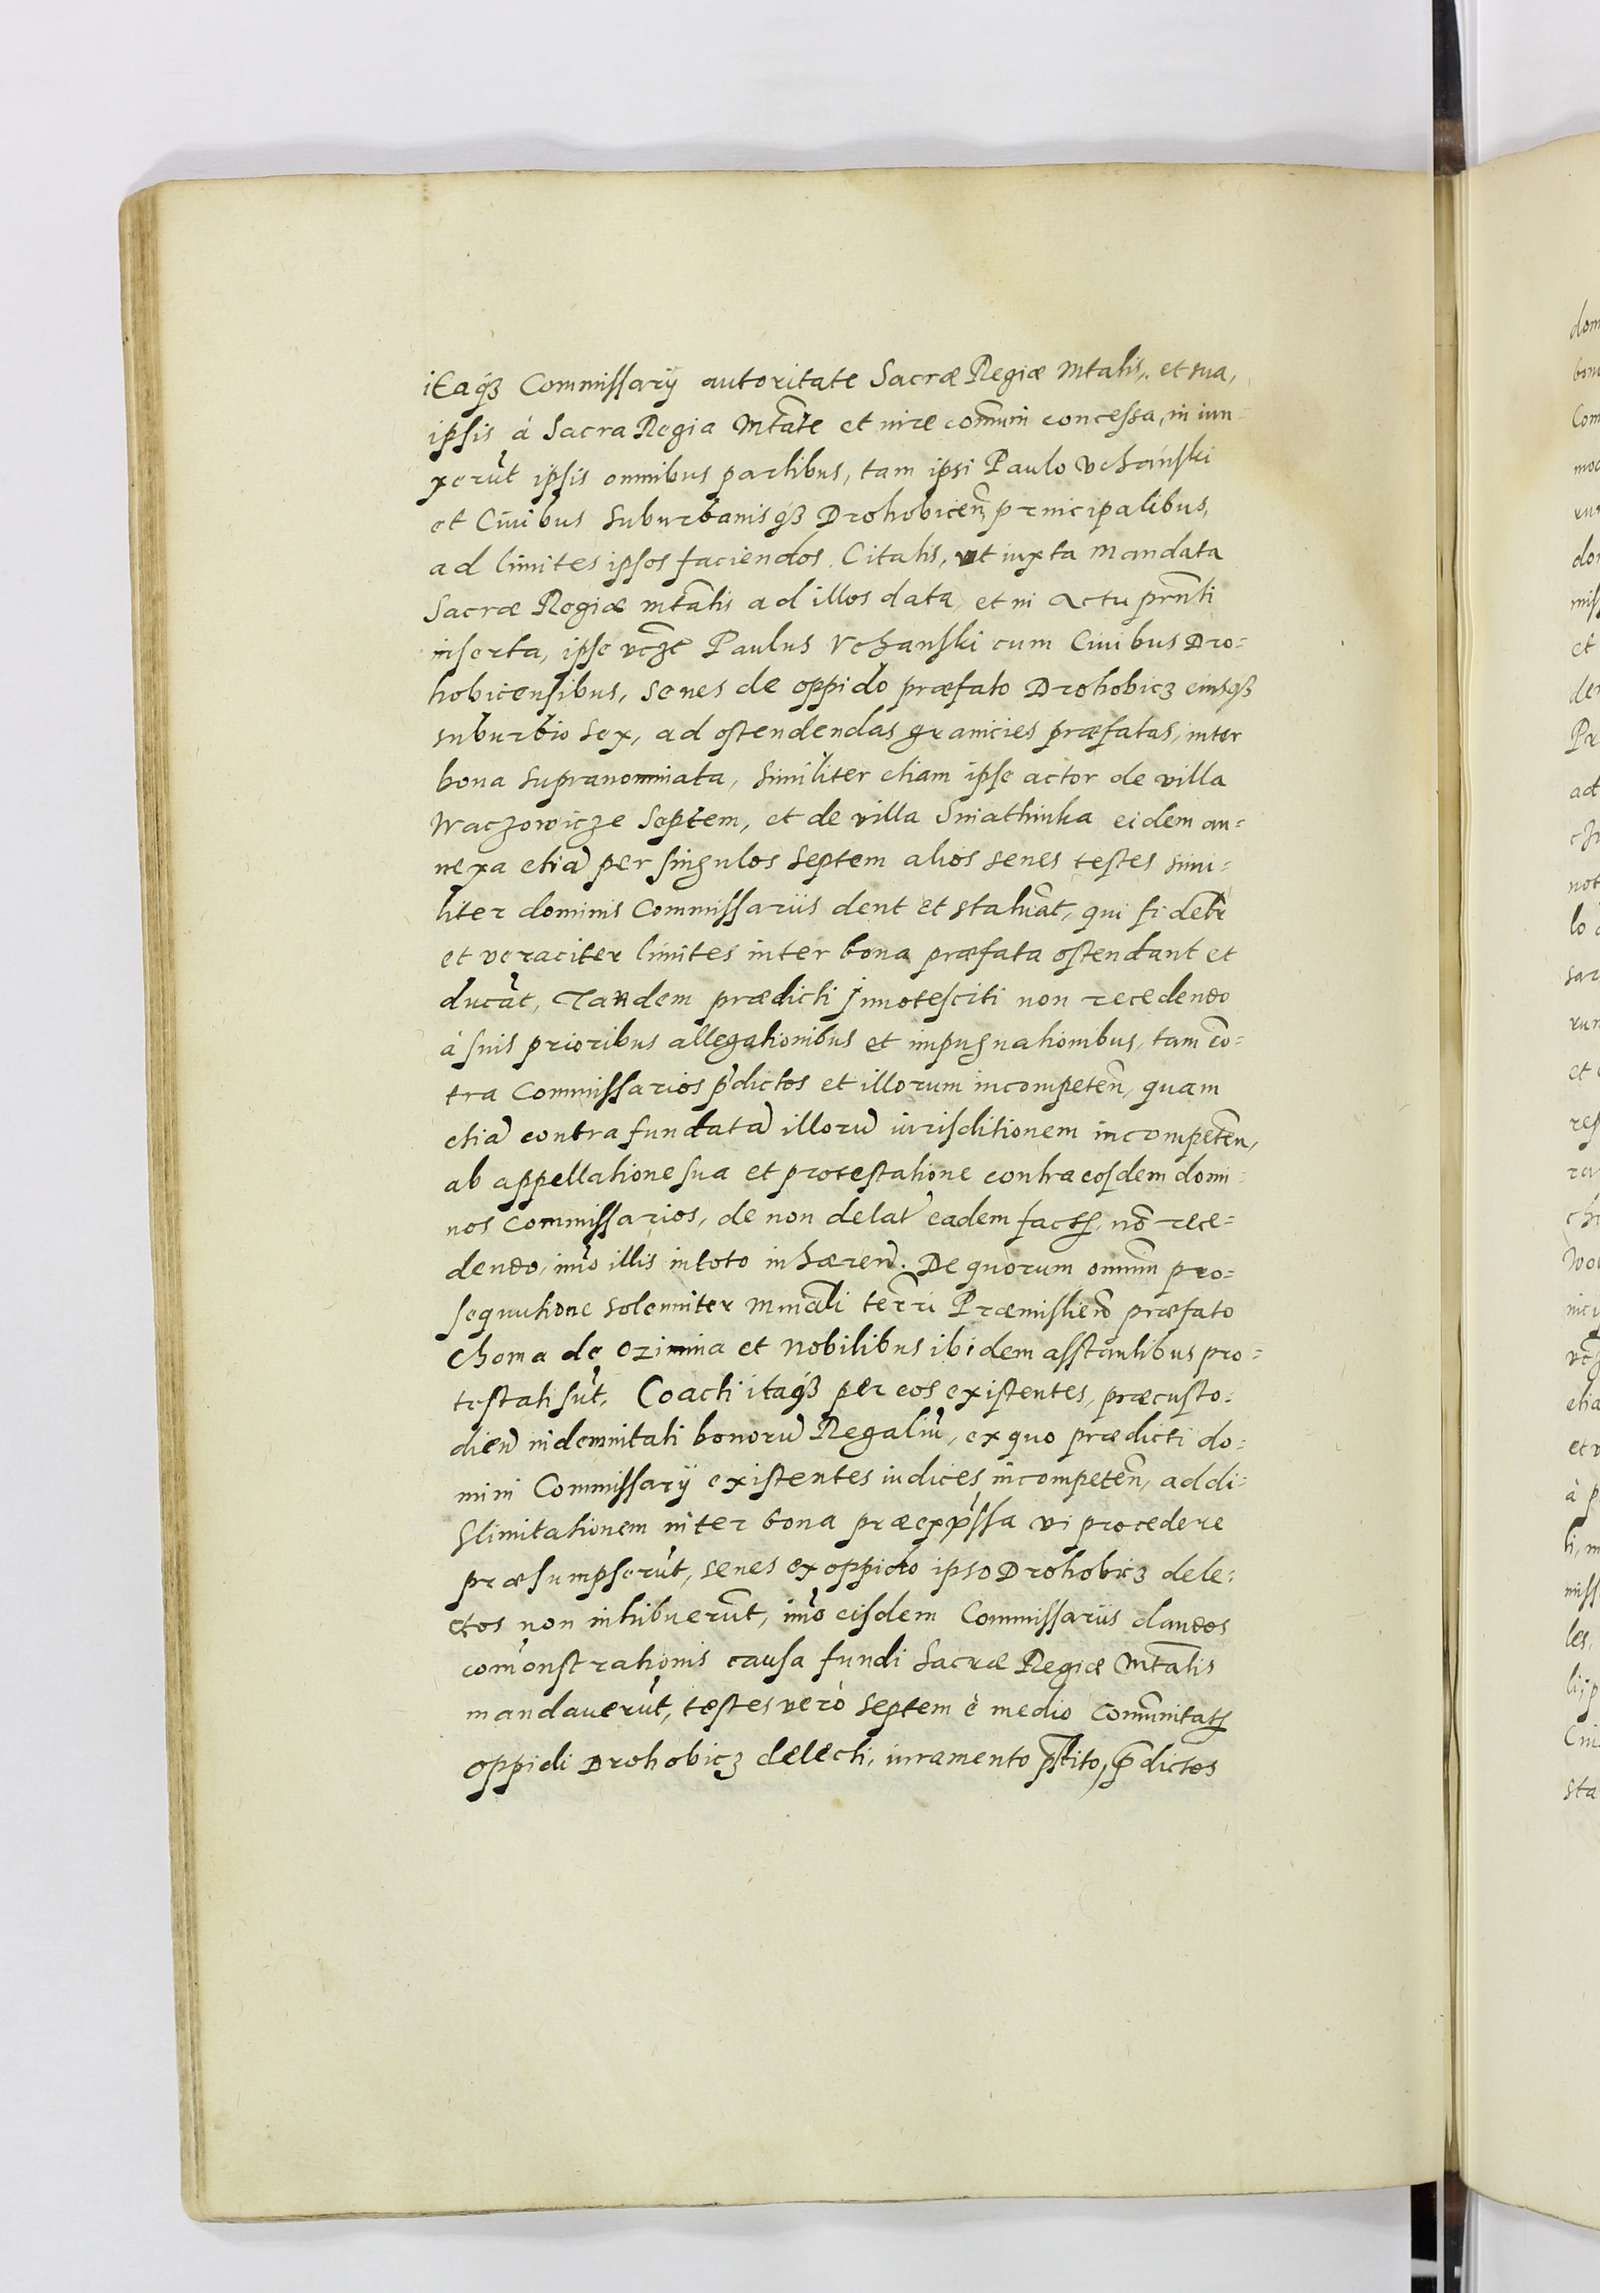 itaqз Commissarij autoritate Sacræ Regiæ Mtatis, et sua,
ipsis á Sacra Regia Mtate et iure commun concessa, in iun-
xerūt ipsis omnibus partibus, tam ipsi Paulo Vchański
et Ciuibus suburbanisqз Drohobicen principalibus,
ad limites ipsos faciendos Citatis, ut iuxta mandata
Sacræ Regiæ mtatis ad illos data, et in Actu prnti
inserta, ipse vcze Paulus Vchanski cum Ciuibus Dro=
hobicensibus, senes de oppido præfato Drohobicz eiusqз
suburbio sex, ad ostendendas granicies præfatas, inter
bona supranominata, similiter etiam ipse actor de villa
Waczowicze septem, et de villa Sniathinka eidem an=
nexa etiā per singulos septem alios senes testes simi=
liter dominis Commissariis dent et statuāt, qui fidelr
et veraciter limites inter bona præfata ostendant et
ducāt, Tandem prædicti Innotesciti non recedendo
á suis prioribus allegationibus et impugnationibus, tam cō=
tra Commissarios pdictos et illorum incompeten, quam
etiā contra fundatā illorū iurisditionem incompeten,
ab appellatione sua et protestatione contra eosdem domi=
nos Commissarios, de non delat eadem fact, nō rece=
dendo, imo illis in toto inhæren. De quorum omnium pro=
sequutione solenniter Minali terri Præmislien præfato
Choma de Ozimina et Nobilibus ibidem asstantibus pro=
testati sūt, Coacti itaqз per eos existentes, præcusto=
dien indemnitati bonorū Regaliū, ex quo prædicti do=
mini Commissarij existentes iudices incompeten, ad di=
slimitationem inter bona præexpssa vi procedere
præsumpserūt, senes ex oppido ipso Drohobicz dele=
ctos non inhibuerūt, imo eisdem Commissariis dandos
comonstrationis causa fundi Sacræ Regiæ Mtatis
mandauerūt, testes vero septem è medio Communitat
oppidi Drohobicz delecti, iuramento pstito, pdictos